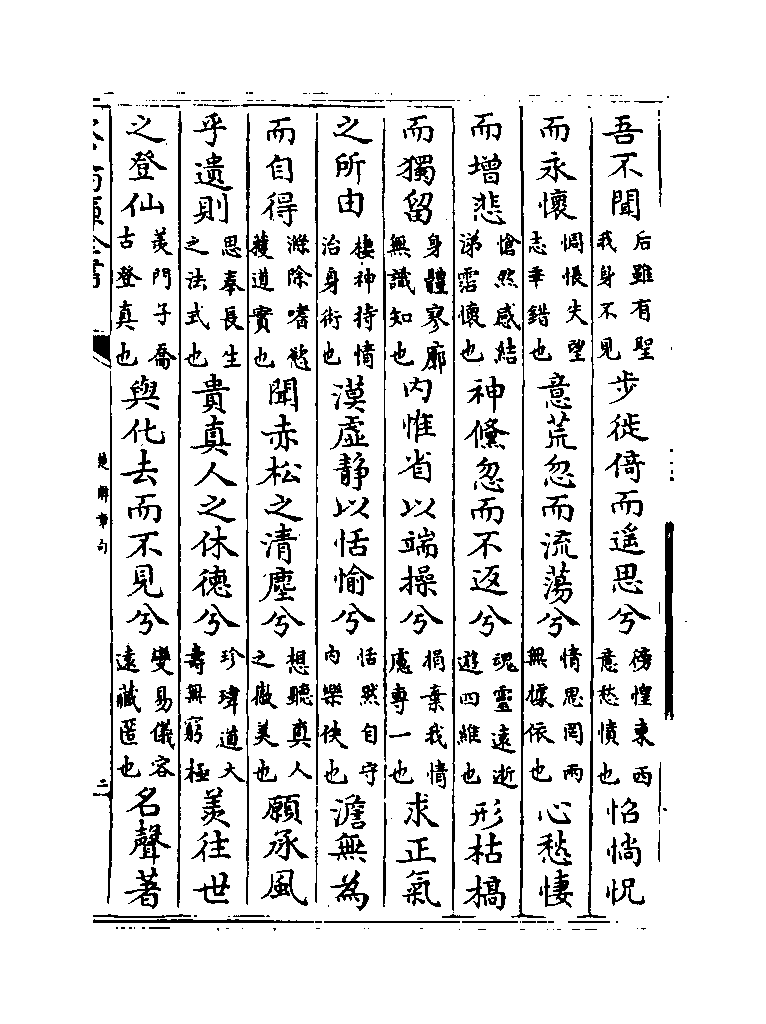 吾不聞后雖有聖我身不見步徙倚而遥思兮徬惶東西意愁憤也怊惝怳
而永懷惆悵失望志乖錯也意荒忽而流蕩兮情思罔兩無據依也心愁悽
而增悲愴然感結涕霑懷也神儵忽而不返兮魂靈遠逝遊四維也形枯槁
而獨留身體寥廓無識知也内惟省以端操兮捐棄我情慮專一也求正氣
之所由棲神持情治身術也漠虛静以恬愉兮恬然自守内樂佚也澹無為
而自得滌除嗜慾獲道實也聞赤松之清塵兮想聽真人之徽美也願承風
乎遺則思奉長生之法式也貴真人之休德兮珍瑋道大壽無窮極羨往世
之登仙羨門子喬古登真也與化去而不見兮變易儀容遠藏匿也名聲著
楚辭章句
二